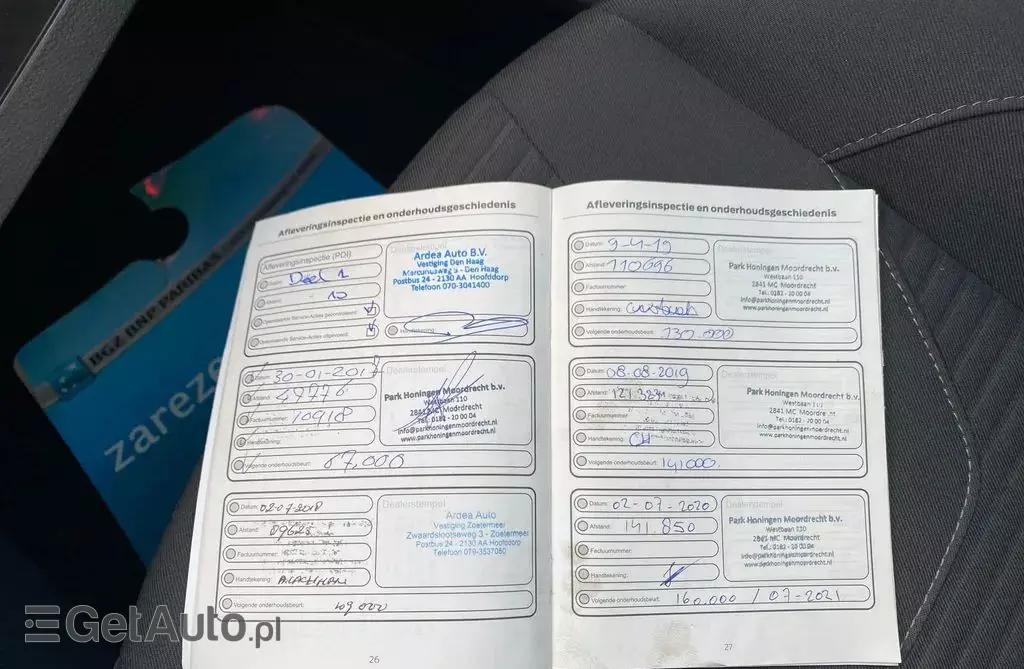 BGZ BNP PARIBAS
zareze
Afleveringsinspectie en onderhoudsgeschiedenis
Afleveringsinspectie (PDI)
Deel 1
10
Handtekening:
Dealerstempel
Ardea Auto B.V.
Vestiging Den Haag
Mercuriusweg 9 - Den Haag
Postbus 24 - 2130 AA Hoofddorp
Telefoon 070-3041400
Datum: 30-01-2017
Afstand: 49776
Factuurnummer: 10918
Handtekening:
Volgende onderhoudsbeurt: 67.000
Dealerstempel
Park Honingen Moordrecht b.v.
Westbaan 110
2841 MC Moordrecht
Tel.: 0182 - 20 00 04
info@parkhoningenmoordrecht.nl
www.parkhoningenmoordrecht.nl
Datum: 02-07-2018
Afstand:
Factuurnummer:
Handtekening:
Volgende onderhoudsbeurt: 109 000
Dealerstempel
Ardea Auto
Vestiging Zoetermeer
Zwaardslootseweg 3 - Zoetermeer
Postbus 24 - 2130 AA Hoofddorp
Telefoon 079-3537080
26
Afleveringsinspectie en onderhoudsgeschiedenis
Datum: 9-4-19
Afstand: 110696
Factuurnummer:
Handtekening:
Volgende onderhoudsbeurt: 130.000
Dealerstempel
Park Honingen Moordrecht b.v.
Westbaan 110
2841 MC Moordrecht
Tel.: 0182 - 20 00 04
info@parkhoningenmoordrecht.nl
www.parkhoningenmoordrecht.nl
Datum: 08-08-2019
Afstand:
Factuurnummer:
Handtekening: CH
Volgende onderhoudsbeurt: 141000.
Dealerstempel
Park Honingen Moordrecht b.v.
Westbaan 110
2841 MC Moordrecht
Tel.: 0182 - 20 00 04
info@parkhoningenmoordrecht.nl
www.parkhoningenmoordrecht.nl
Datum: 02-07-2020
Afstand: 141.850
Factuurnummer:
Handtekening:
Volgende onderhoudsbeurt: 160.000 / 07-2021
Dealerstempel
Park Honingen Moordrecht b.v.
2841 MC Moordrecht
Tel.: 0182 - 20 00 04
info@parkhoningenmoordrecht.nl
www.parkhoningenmoordrecht.nl
27
GetAuto.pl